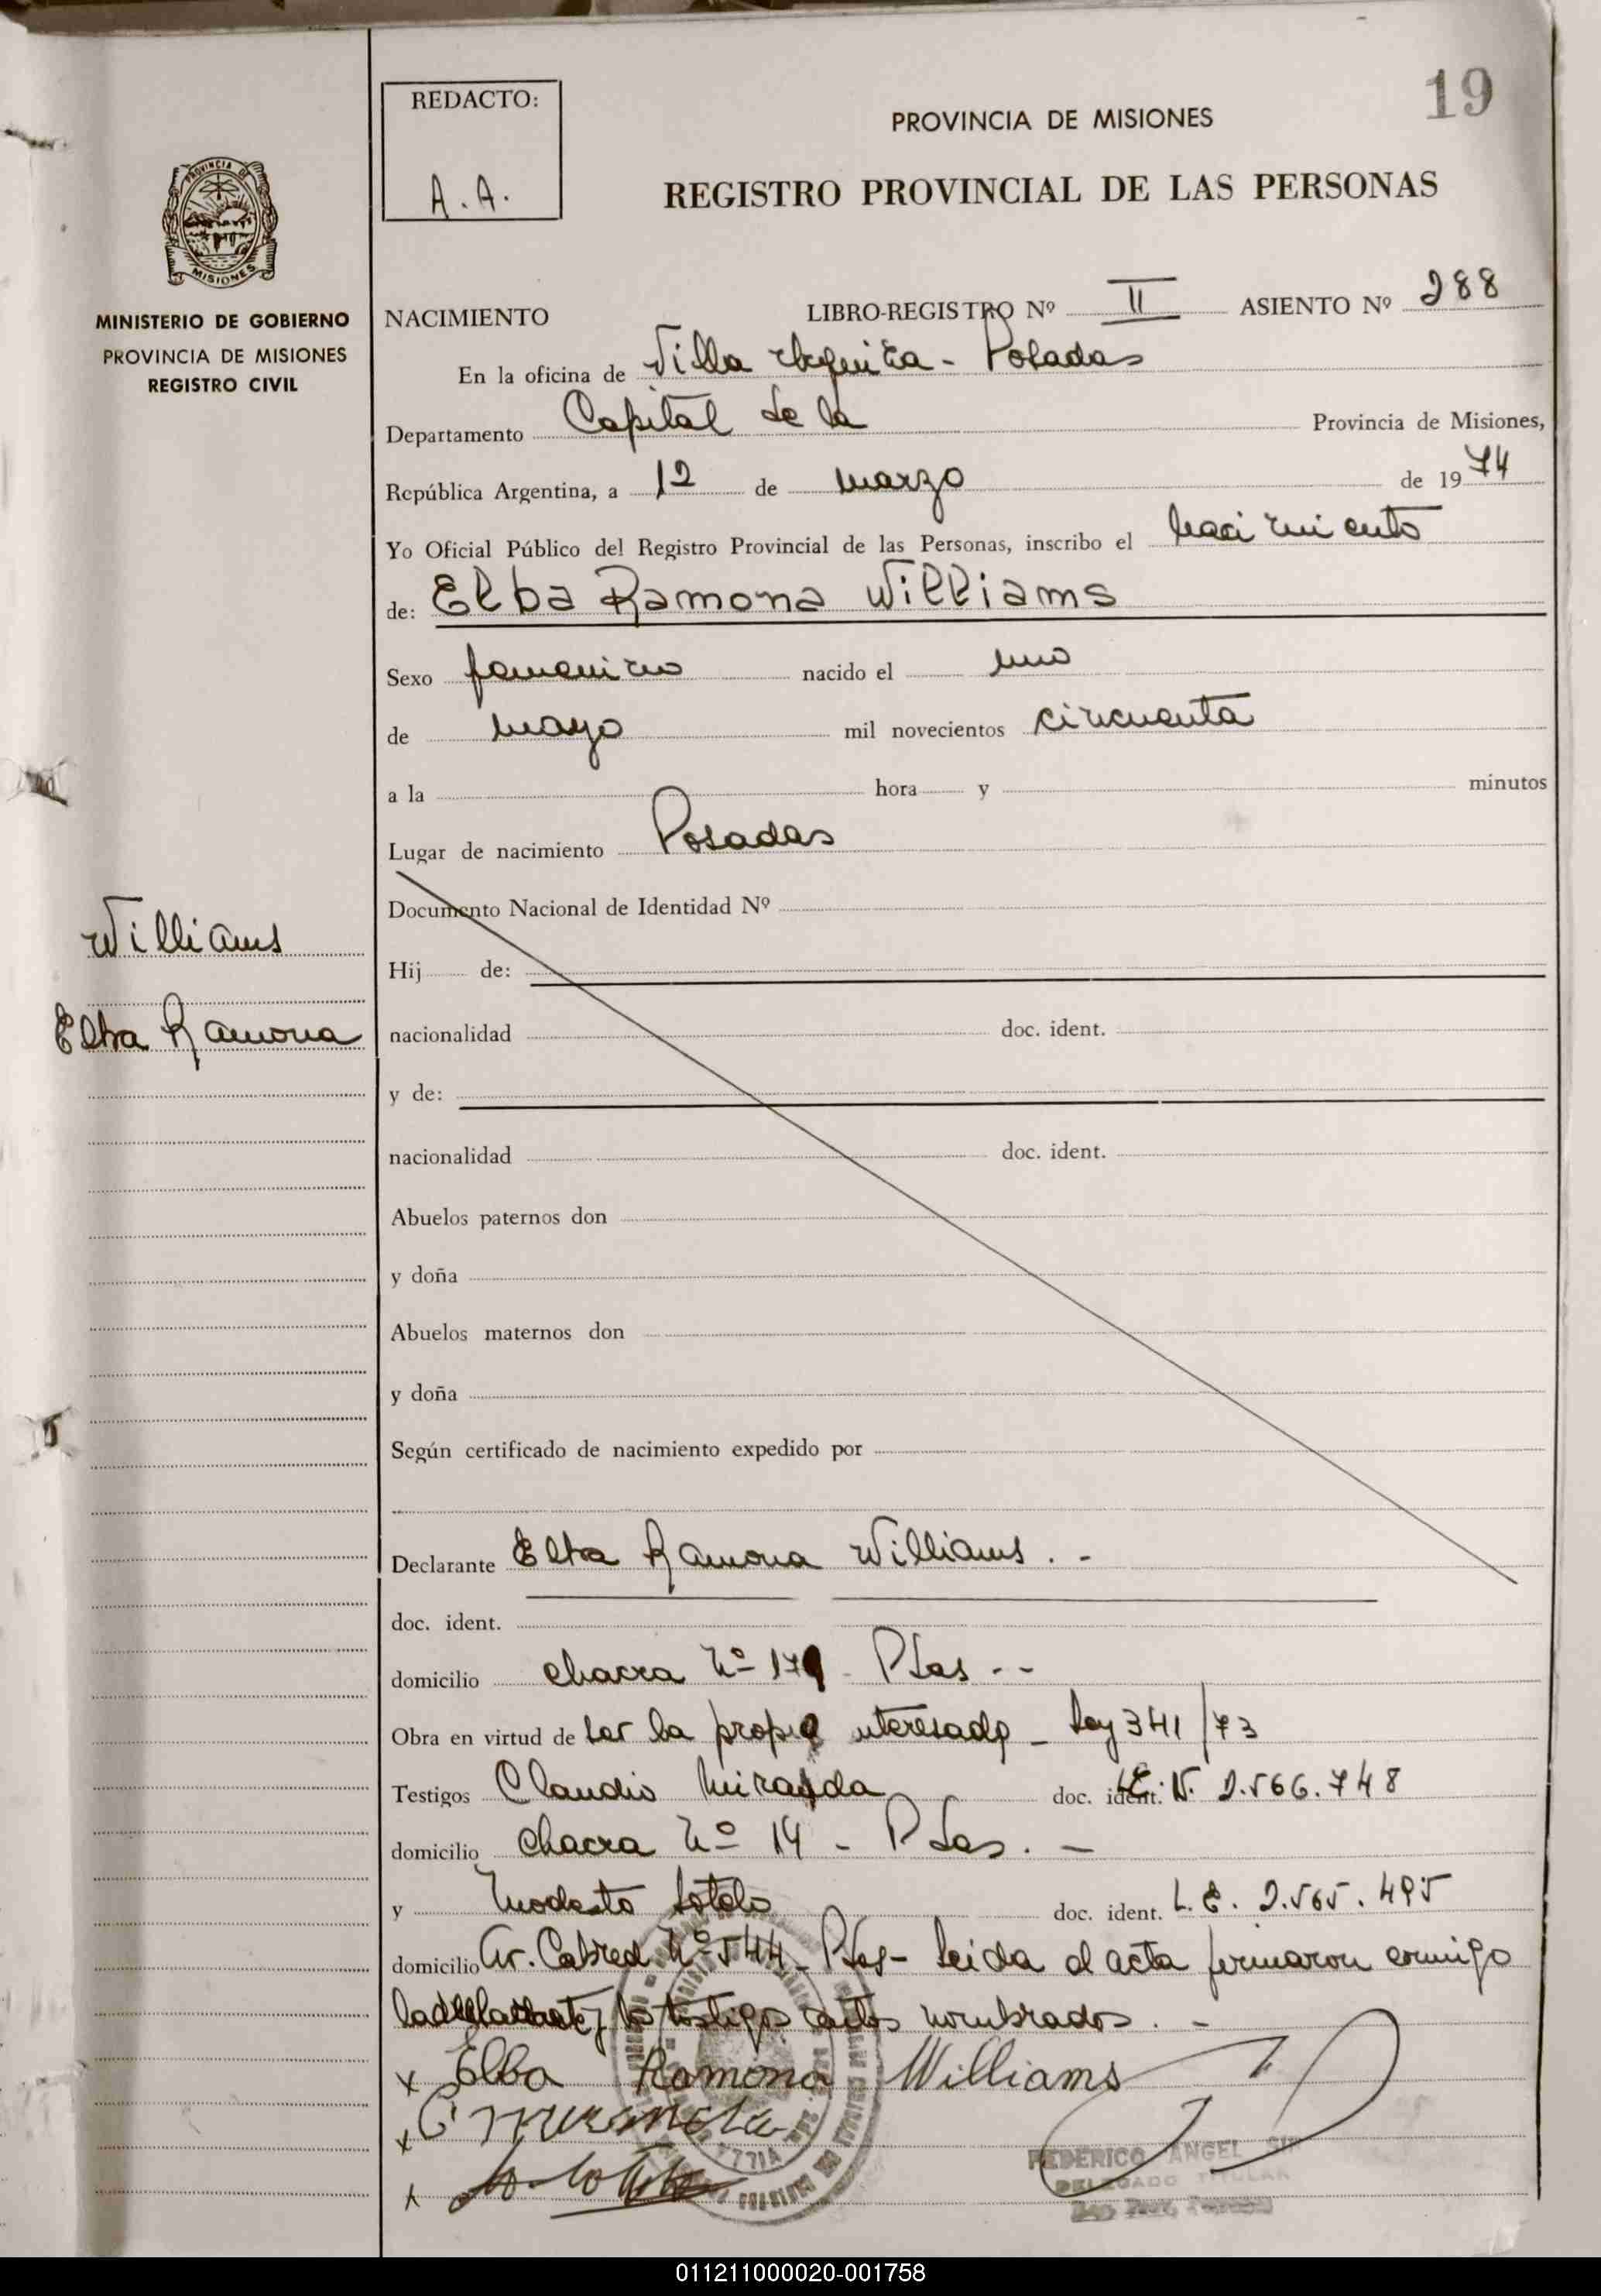 19
REDACTO:
A.A.
PROVINCIA DE MISIONES
REGISTRO PROVINCIAL DE LAS PERSONAS
PROVINCIA DE
MISIONES
MINISTERIO DE GOBIERNO
PROVINCIA DE MISIONES
REGISTRO CIVIL
NACIMIENTO LIBRO-REGISTRO Nº II ASIENTO Nº 288
En la oficina de Villa Urquiza - Posadas
Departamento Capital de la Provincia de Misiones,
República Argentina, a 12 de marzo de 1974
Yo Oficial Público del Registro Provincial de las Personas, inscribo el nacimiento
de: Elba Ramona Williams
Sexo femenino nacido el uno
de mayo mil novecientos cincuenta
a la hora y minutos
Lugar de nacimiento Posadas
Documento Nacional de Identidad Nº
Williams
Hij de:
Elba Ramona
nacionalidad doc. ident.
y de:
nacionalidad doc. ident.
Abuelos paternos don
y doña
Abuelos maternos don
y doña
Según certificado de nacimiento expedido por
Declarante Elba Ramona Williams. -
doc. ident.
domicilio chacra Nº 179 - Pdas --
Obra en virtud de ser la propia interesada - Ley 341/73
Testigos Claudio Miranda doc. ident. L.E. N. 2.566.748
domicilio chacra Nº 14 - Pdas. -
y Modesto Sotelo doc. ident. L.E. 2.565.495
domicilio Av. Cabred Nº 544 - Pdas - Leida el acta firmaron conmigo
la declarante y los testigos antes nombrados. -
x Elba Ramona Williams
x C Miranda
x
FEDERICO ANGEL
DELEGADO TITULAR
011211000020-001758